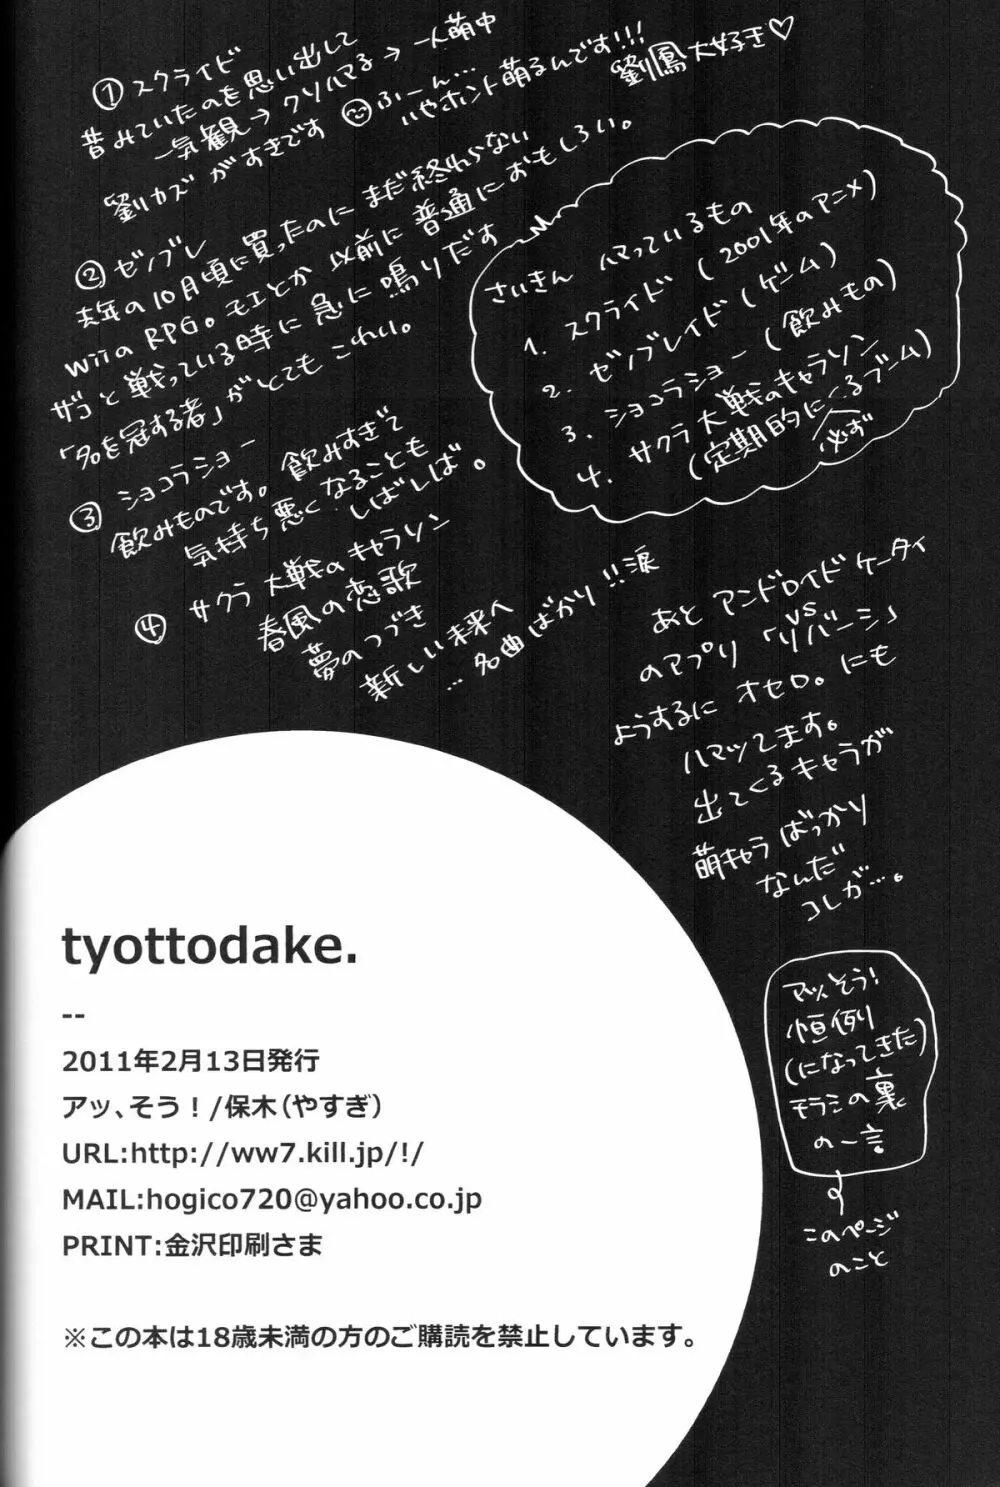 ①スクライド
昔みていたのを思い出して
一気観→クソハマる→一人萌中
劉カズがすきです ふーん…
いやホント萌るんです!!!
劉鳳大好き♡
②ゼノブレ
去年の10月頃に買ったのにまだ終わらない
WiiのRPG。モエとか以前に普通におもしろい。
ザコと戦っている時に急に鳴りだす
「名を冠する者」がとてもこわい。
③ショコラショー
飲みものです。飲みすぎて
気持ち悪くなることも
しばしば。
④サクラ大戦のキャラソン
春風の恋歌
夢のつづき
新しい未来へ
…名曲ばかり!!涙
さいきん ハマっているもの
1. スクライド(2001年のアニメ)
2. ゼノブレイド(ゲーム)
3. ショコラショー(飲みもの)
4. サクラ大戦のキャラソン
(定期的に必ずくるブーム)
あと アンドロイドケータイ
のアプリ「vsリバーシ」
ようするにオセロ。にも
ハマッてます。
出てくるキャラが
萌キャラばっかり
なんだ
コレが…。
アッ、そう!
恒例
(になってきた)
チラシの裏
の一言
このページ
のこと
tyottodake.
--
2011年2月13日発行
アッ、そう！/保木（やすぎ）
URL:http://ww7.kill.jp/!/
MAIL:hogico720@yahoo.co.jp
PRINT:金沢印刷さま
※この本は18歳未満の方のご購読を禁止しています。